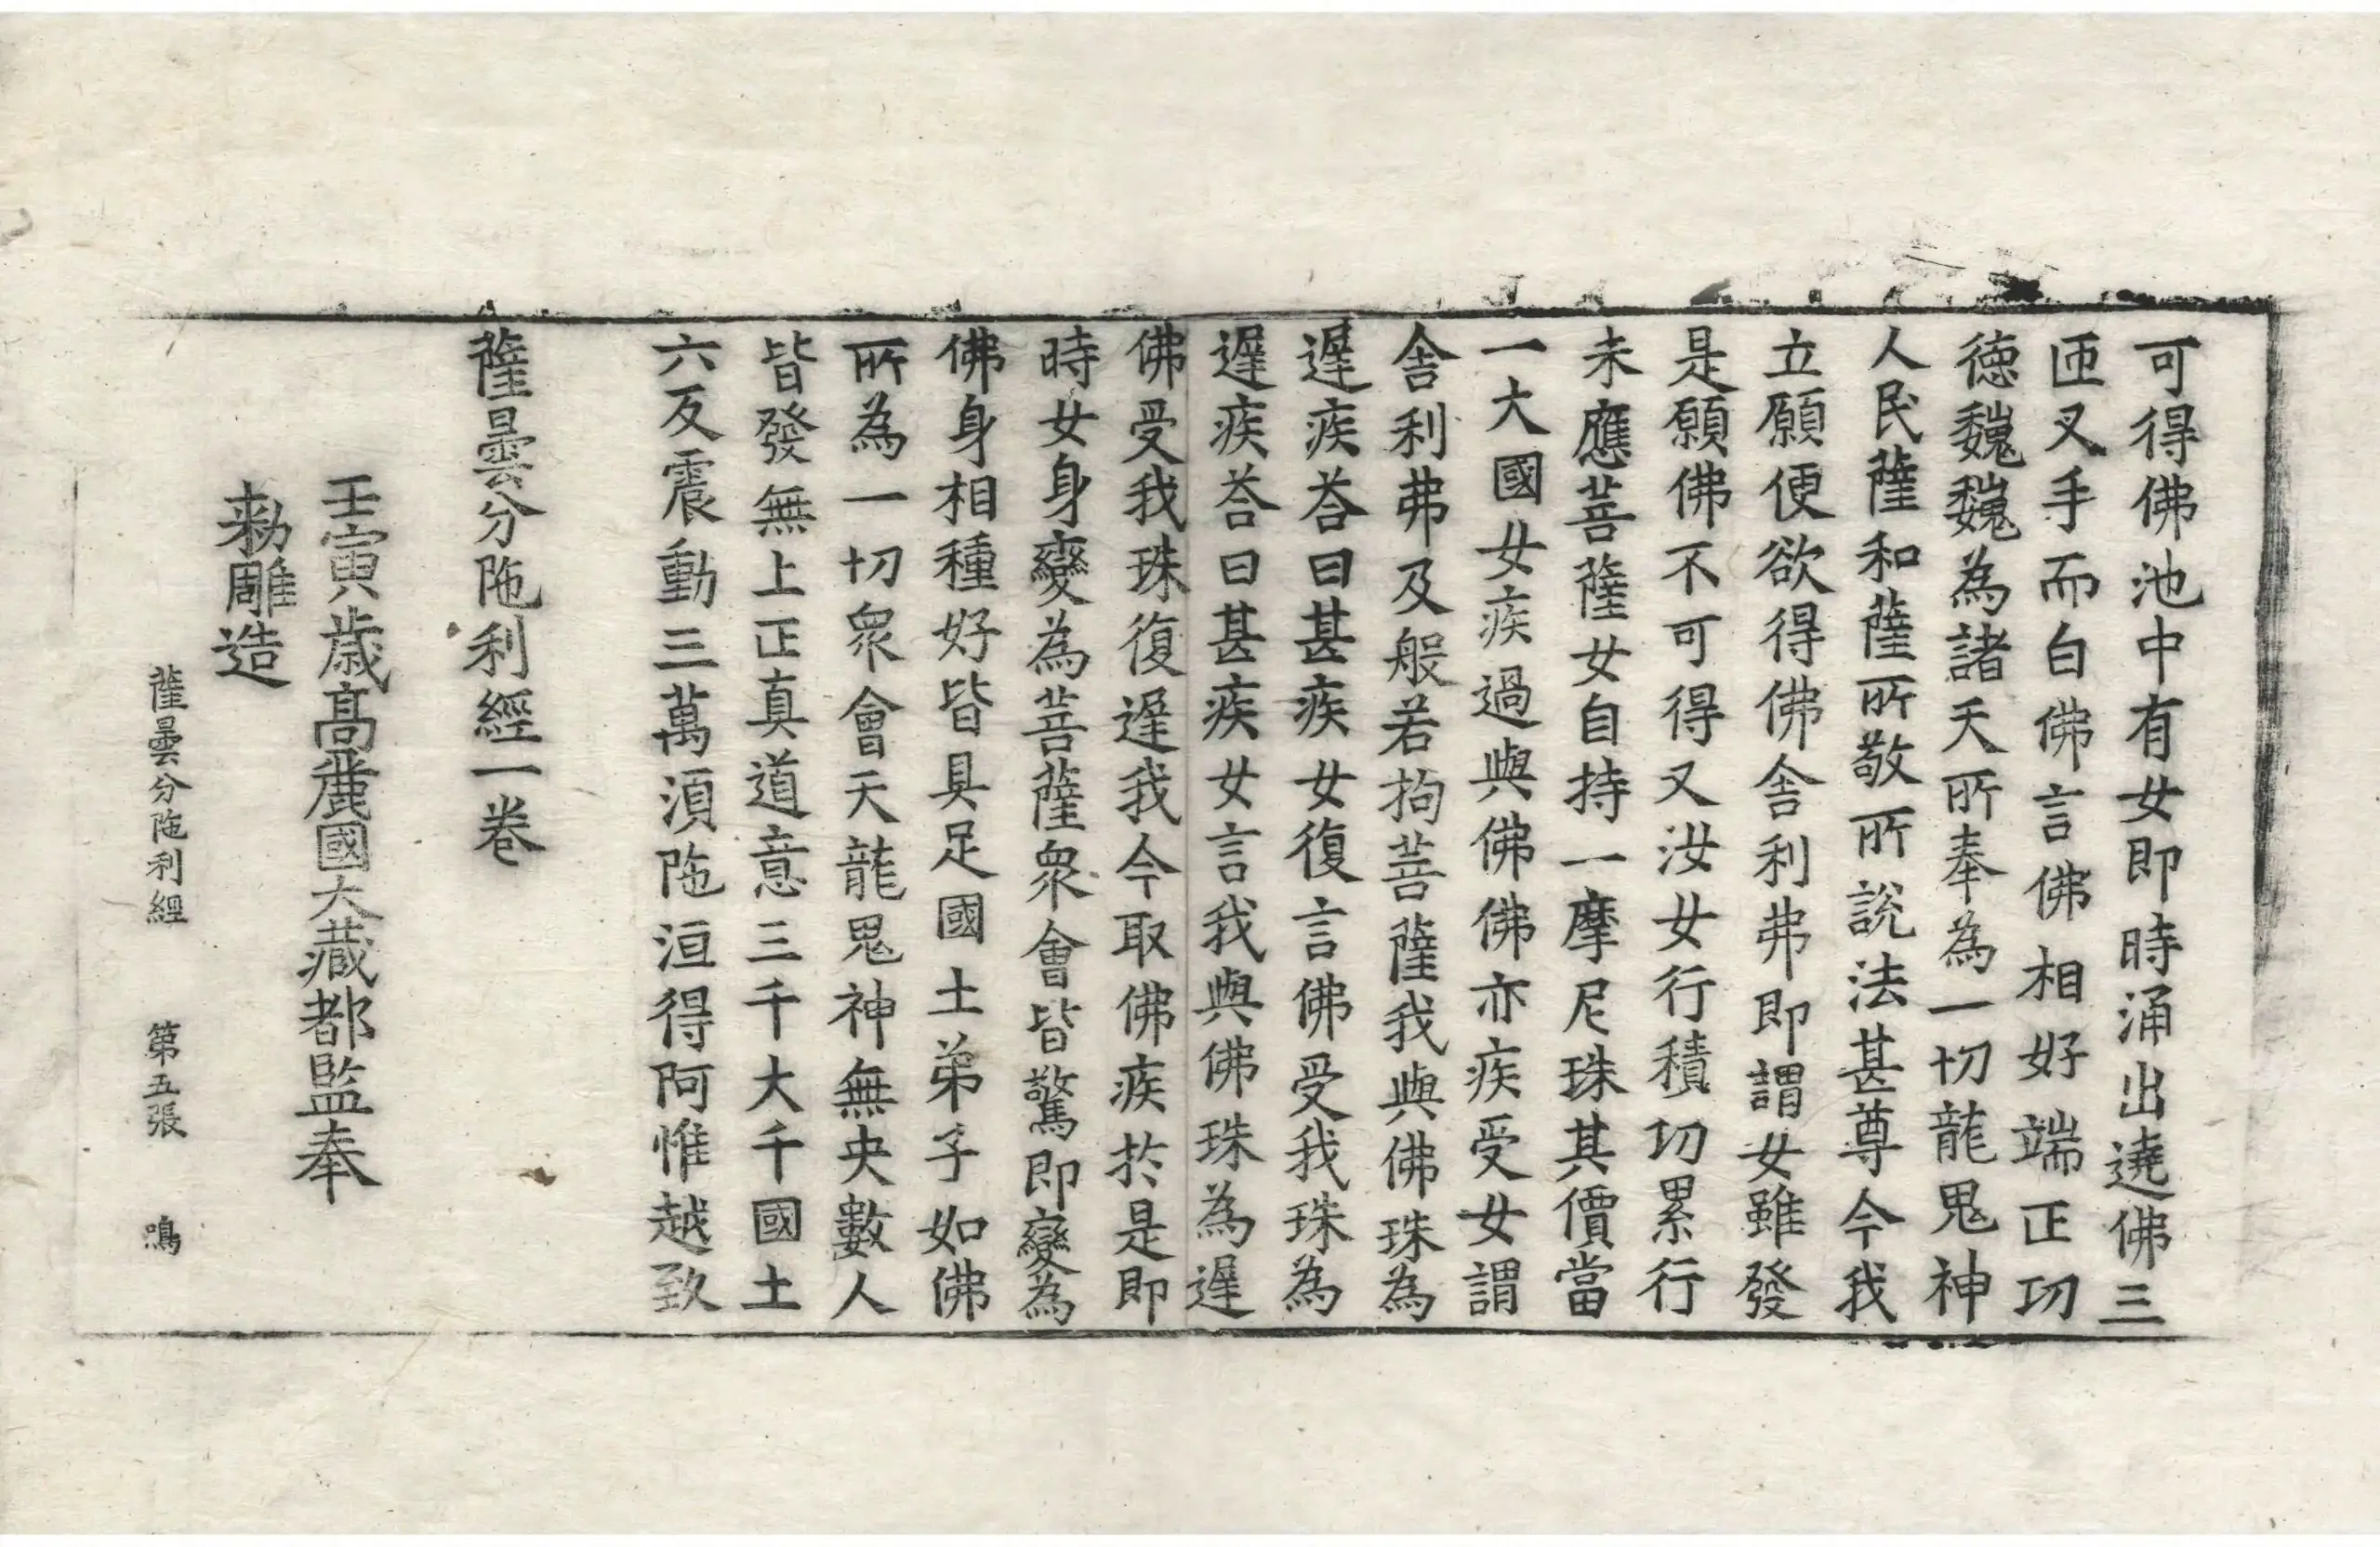 可得佛池中有女即時涌出遶佛三
匝叉手而白佛言佛相好端正功
德巍巍為諸天所奉為一切龍鬼神
人民薩和薩所敬所說法甚尊今我
立願便欲得佛舍利弗即謂女雖發
是願佛不可得又汝女行積功累行
未應菩薩女自持一摩尼珠其價當
一大國女疾過與佛佛亦疾受女謂
舍利弗及般若拘菩薩我與佛珠為
遲疾荅曰甚疾女復言佛受我珠為
遲疾荅曰甚疾女言我與佛珠為遲
佛受我珠復遲我今取佛疾於是即
時女身變為菩薩衆會皆驚即變為
佛身相種好皆具足國土弟子如佛
所為一切衆會天龍鬼神無央數人
皆發無上正真道意三千大千國土
六反震動三萬湏陁洹得阿惟越致
薩曇分陁利經一卷
壬寅歲高麗國大藏都監奉
勅雕造
薩曇分陁利經　第五張　鳴